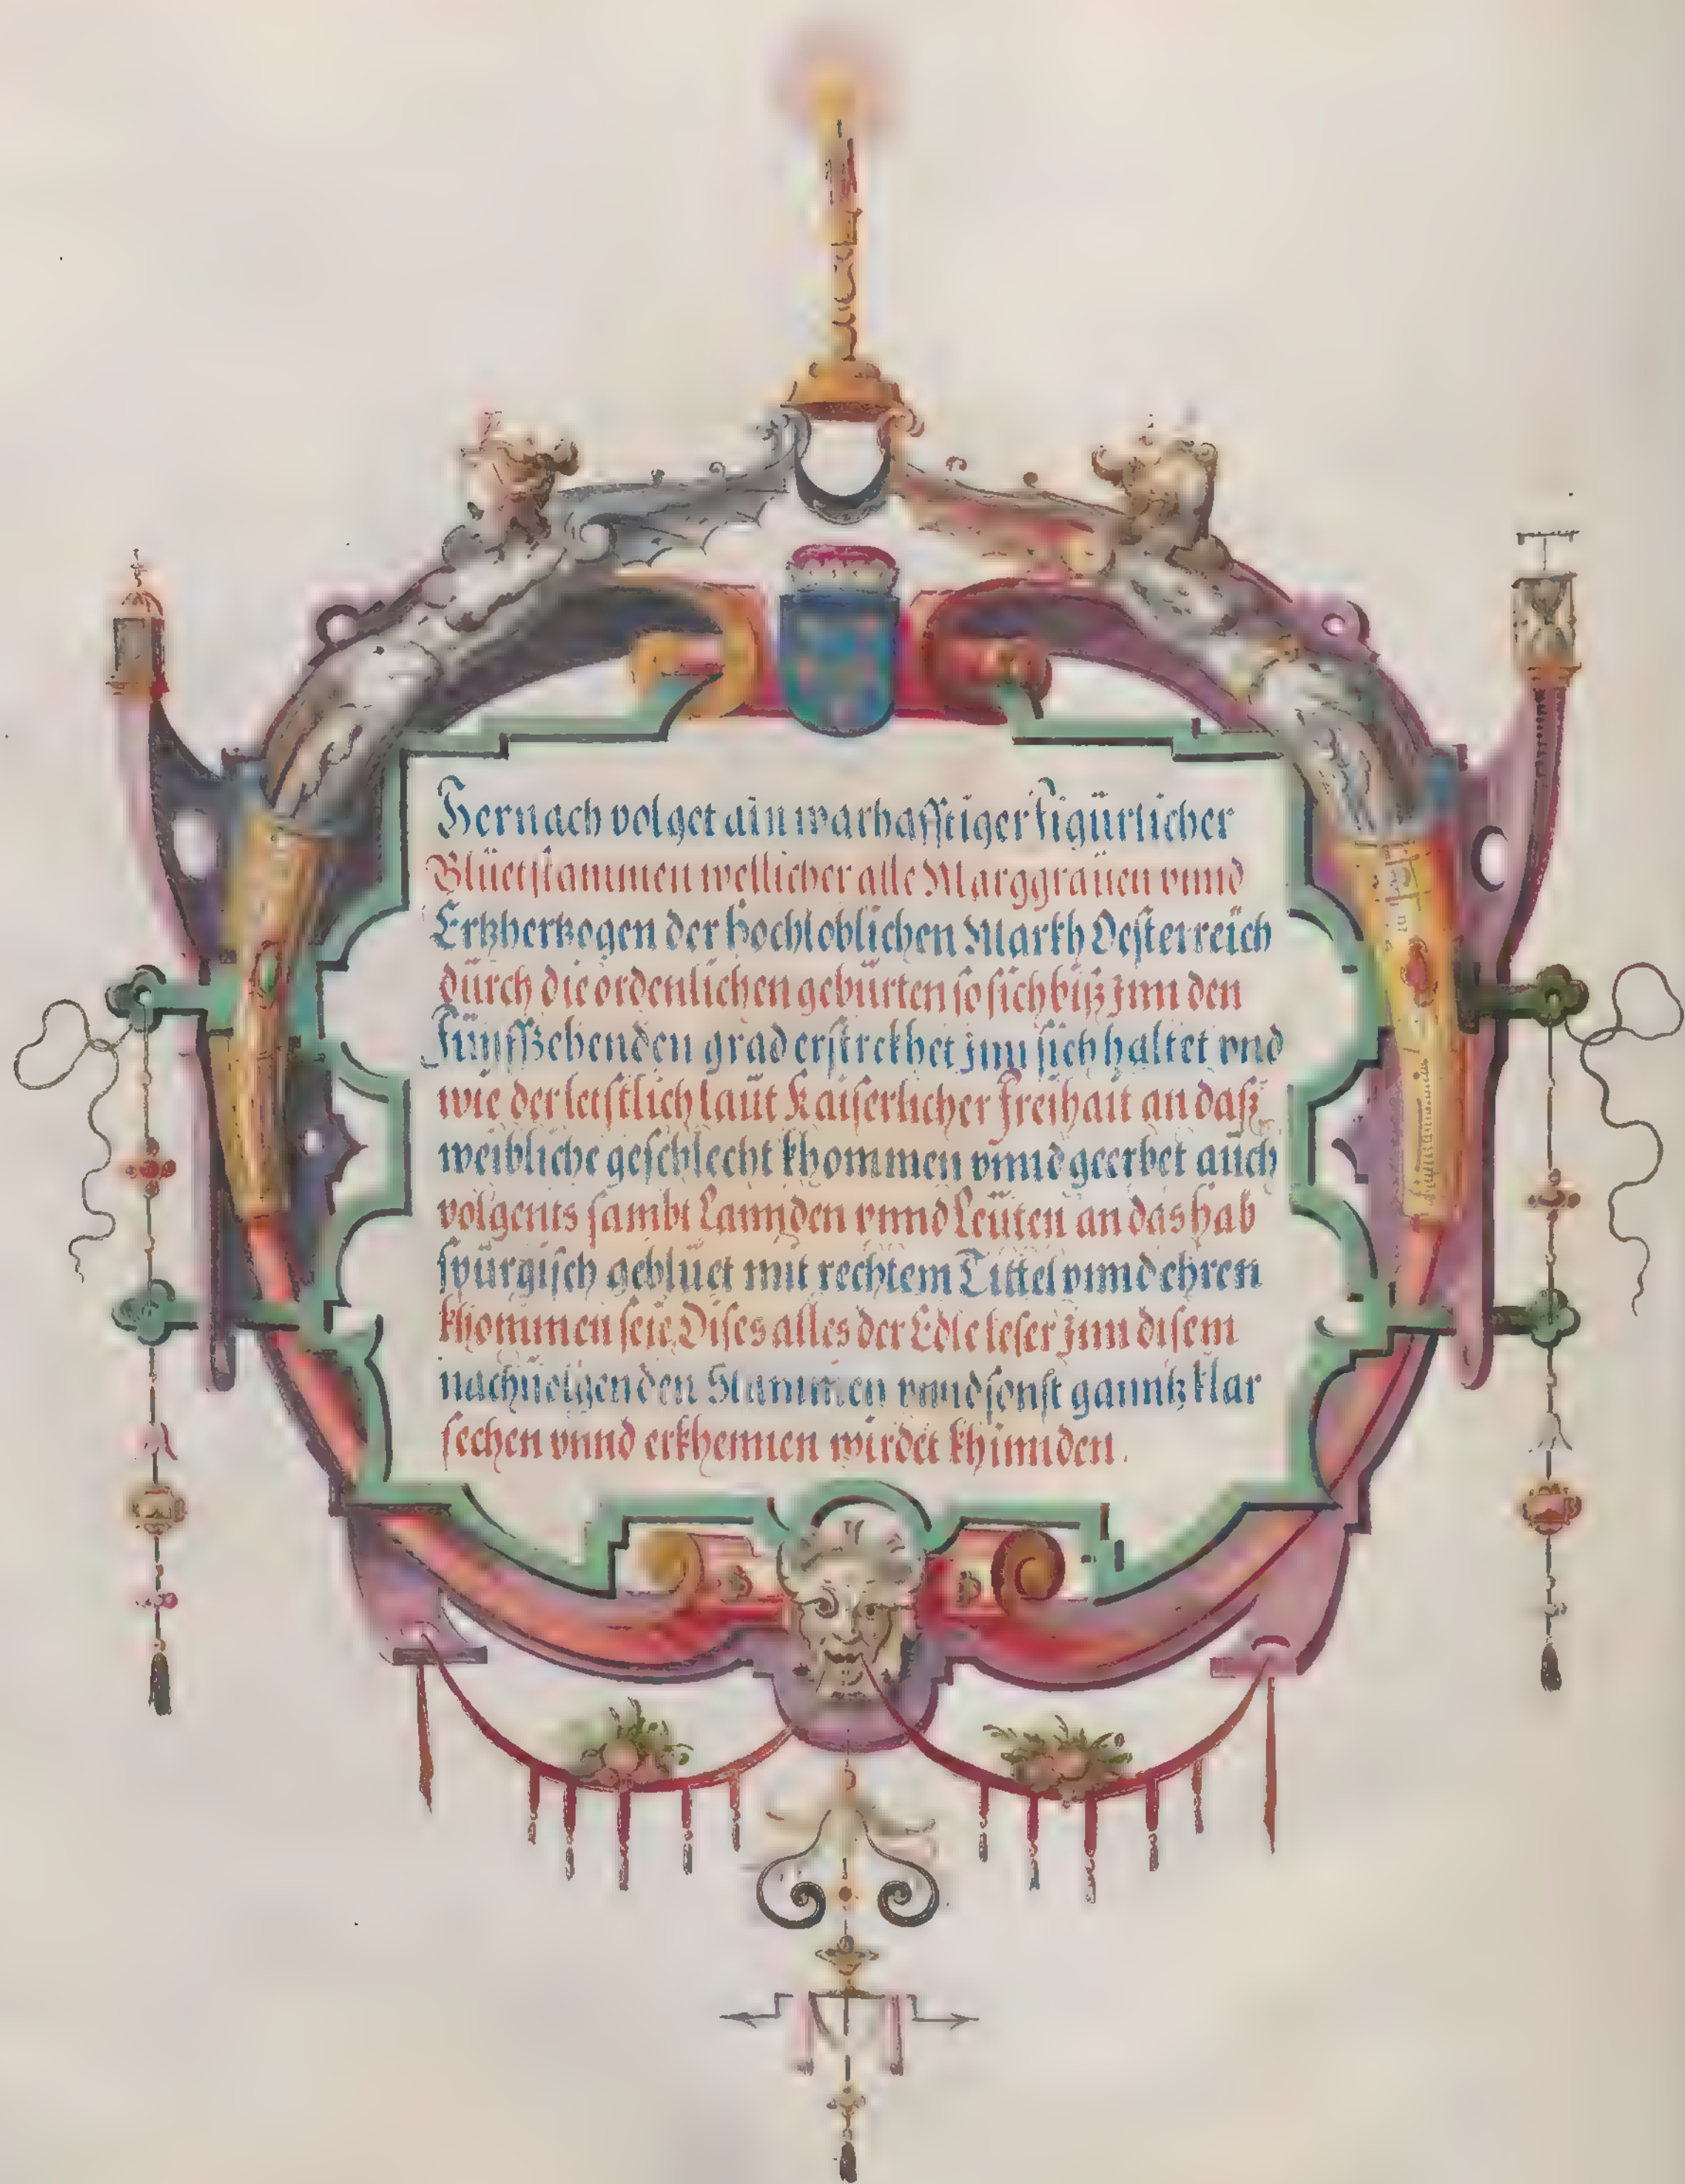 Hernach volget ain warhafftiger Figürlicher
Blüetstammen wellicher alle Marggrauen vnnd
Ertzhertzogen der hochloblichen Markh Oesterreich
dürch die ordenlichen gebürten so sich biß jnn den
Fünffzehenden grad erstrekhet jnn sich haltet vnd
wie der letstlich laüt Kaiserlicher freihait an daß
weibliche geschlecht khommen vnnd geerbet aüch
volgents sambt Lannden vnnd Leüten an das hab
spürgisch geblüet mit rechtem Tittel vnnd ehren
khommen seie, Dises alles der Edle leser jnn disem
nachüolgenden Stammen vnnd sonst ganntz klar
sechen vnnd erkhennen wirdet khinnden.